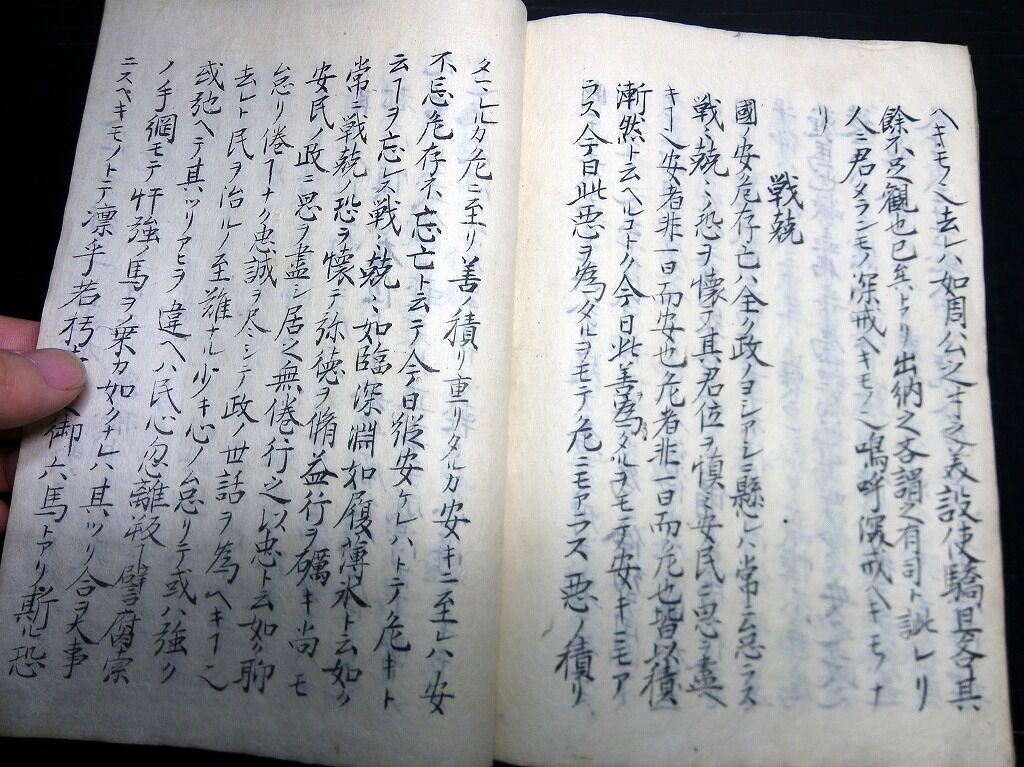 ヘキモノ也去レハ如周公之才之美設使驕且吝其
餘不足観也已矣トアリ出納之吝謂之有司ト訿レリ
人ニ君タランモノ深戒ヘキモノ也嗚呼深戒ヘキモノナ
リ
戦兢
國ノ安危存亡ハ全ク政ノヨシアシニ懸レハ常ニ云忘ラス
戦ミ兢ミ恐ヲ懐テ其君位ヲ慎ミ安民ニ思ヲ盡ヘ
キ一也安者非一日而安也危者非一日而危也皆以積
漸然ト云ヘルコトク今日此善為タルヲモテ安キニモア
ラス今日此悪ヲ為タルヲモテ危ニモアラス悪ノ積リ
タルカ危ニ至リ善ノ積リ重リタルカ安キニ至レハ安
不忘危存不忘亡ト云テ今日縦安ケレハトテ危キト
云ヿヲ忘レス戦ミ兢ミ如臨深淵如履薄氷ト云如ク
常ニ戦兢ノ恐ヲ懐テ弥徳ヲ脩益行ヲ礪キ尚モ
安民ノ政ニ思ヲ盡シ居之無倦行之以忠ト云如ク聊
怠リ倦ヿナク忠誠ヲ尽シテ政ノ世話ヲ為ヘキヿ也
去レト民ヲ治ルノ至難ナル少キ心ノ怠リテ或ハ強ク
或弛ヘテ其ツリアヒヲ違ヘハ民心忽離叛ヿ譬腐索
ノ手綱モテ奸強ノ馬ヲ乗カ如クナレハ其ツリ合ヲ大事
ニスヘキモノトテ凛乎若朽 御六馬トアリ斯ル恐